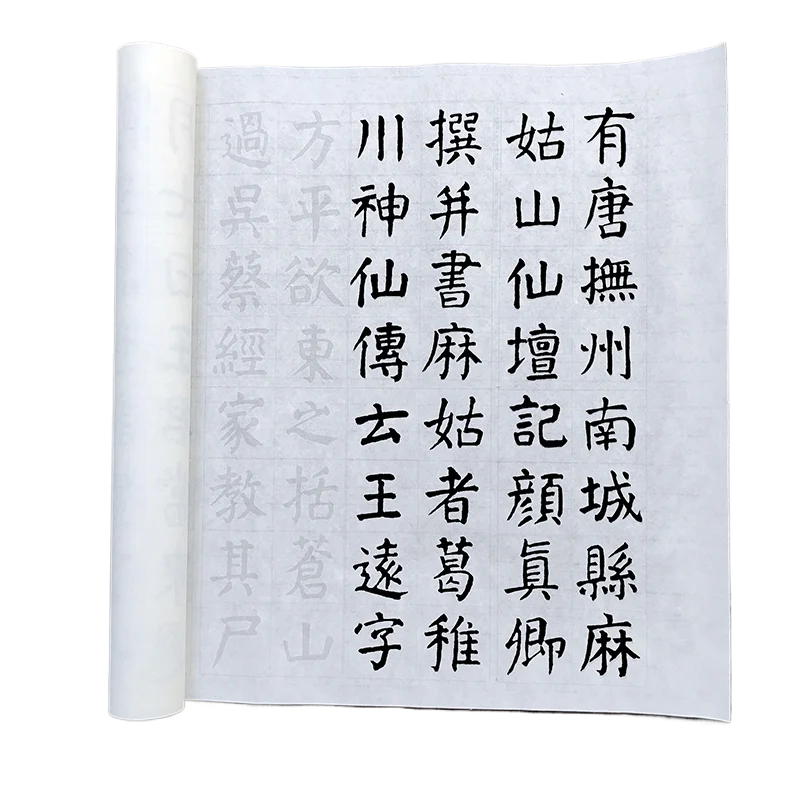 有唐撫州南城縣麻
姑山仙壇記顏真卿
撰并書麻姑者葛稚
川神仙傳云王遠字
方平欲東之括蒼山
過吳蔡經家教其尸